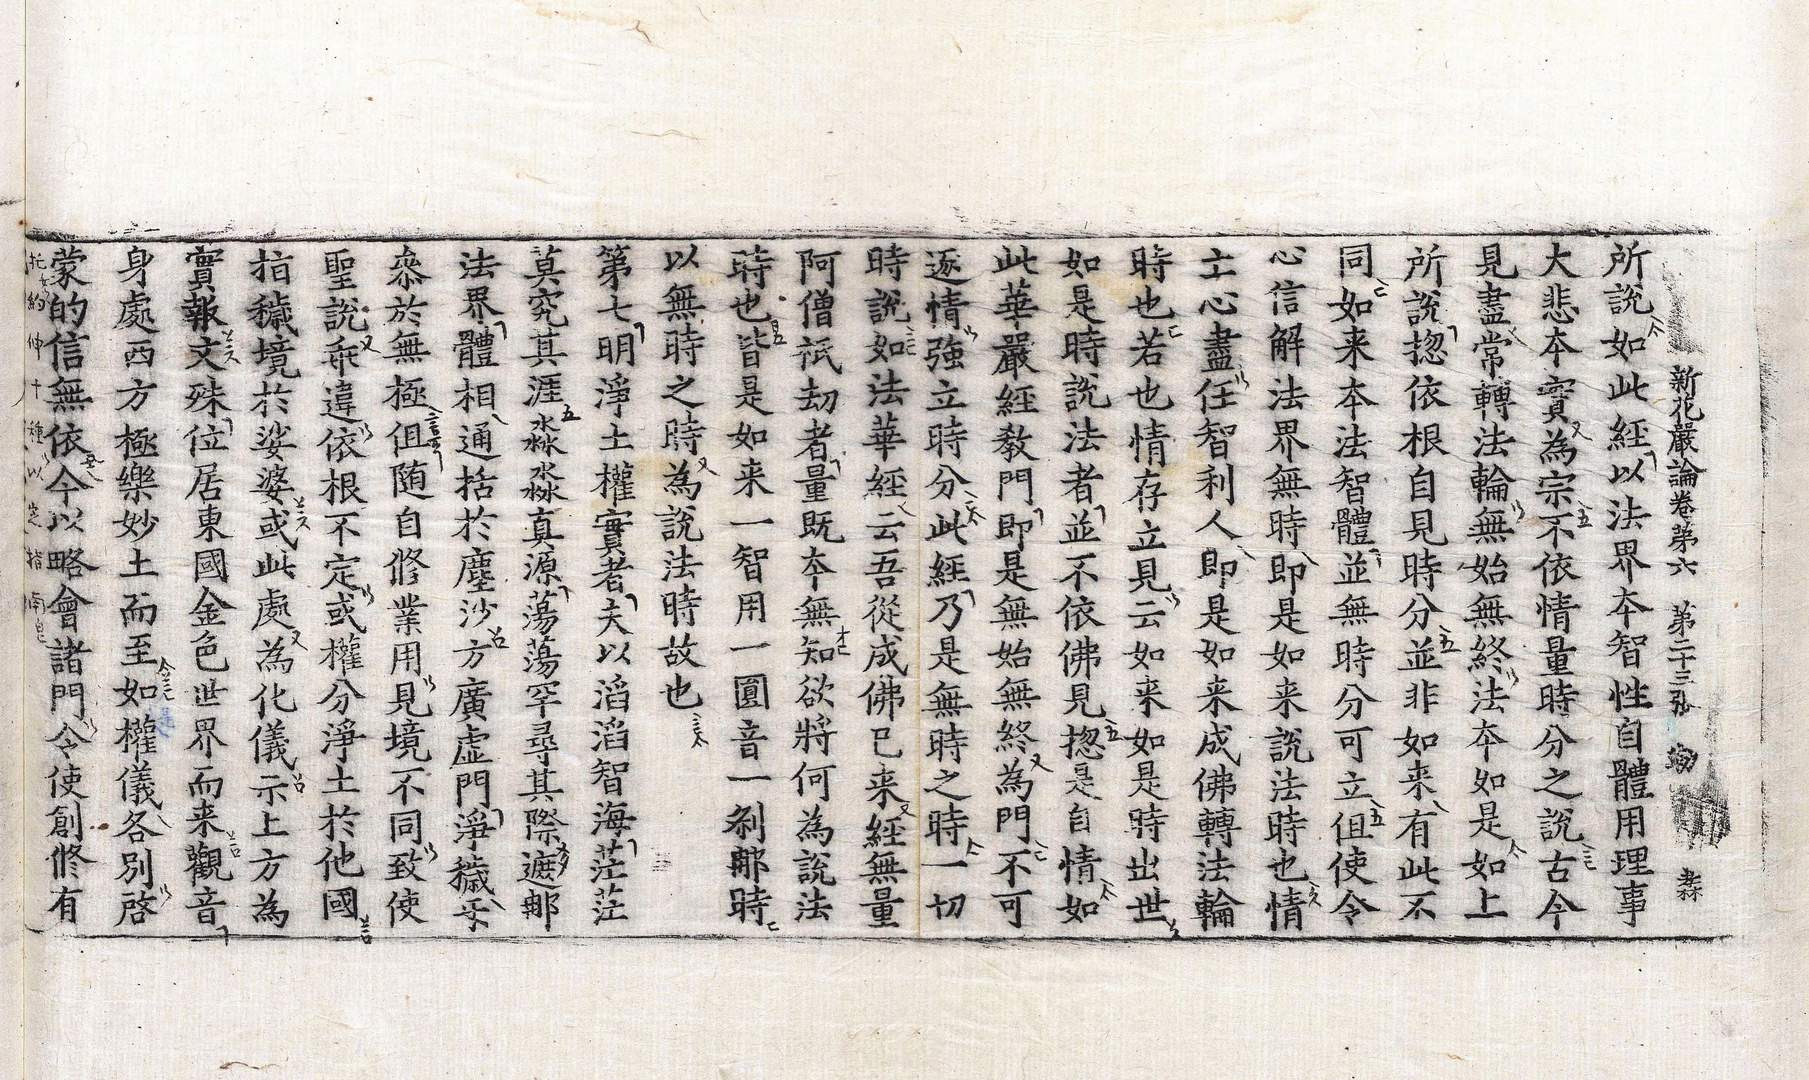 新花嚴論卷第六　第二十三張　㘅　森
所說如此經以法界本智性自體用理事
大悲本實為宗不依情量時分之說古今
見盡常轉法輪無始無終法本如是如上
所說捴依根自見時分並非如来有此不
同如来本法智體並無時分可立伹使令
心信解法界無時即是如来說法時也情
亡心盡任智利人即是如来成佛轉法輪
時也若也情存立見云如来如是時出世
如是時說法者並不依佛見捴是自情如
此華嚴經教門即是無始無終為門不可
逐情強立時分此經乃是無時之時一切
時說如法華經云吾從成佛已来經無量
阿僧祇劫者量既本無知欲將何為說法
時也皆是如来一智用一圓音一刹那時
以無時之時為說法時故也
第七明淨土權實者夫以滔滔智海茫茫
莫究其涯淼淼真源蕩蕩罕尋其際遮那
法界體相通括於塵沙方廣虛門淨穢𠃔
叅於無極伹随自修業用見境不同致使
聖說乖違依根不定或權分淨土於他國
指穢境於娑婆或此處為化儀示上方為
實報文殊位居東國金色世界而来觀音
身處西方極樂妙土而至如權儀各別啓
蒙的信無依今以略會諸門令使創修有